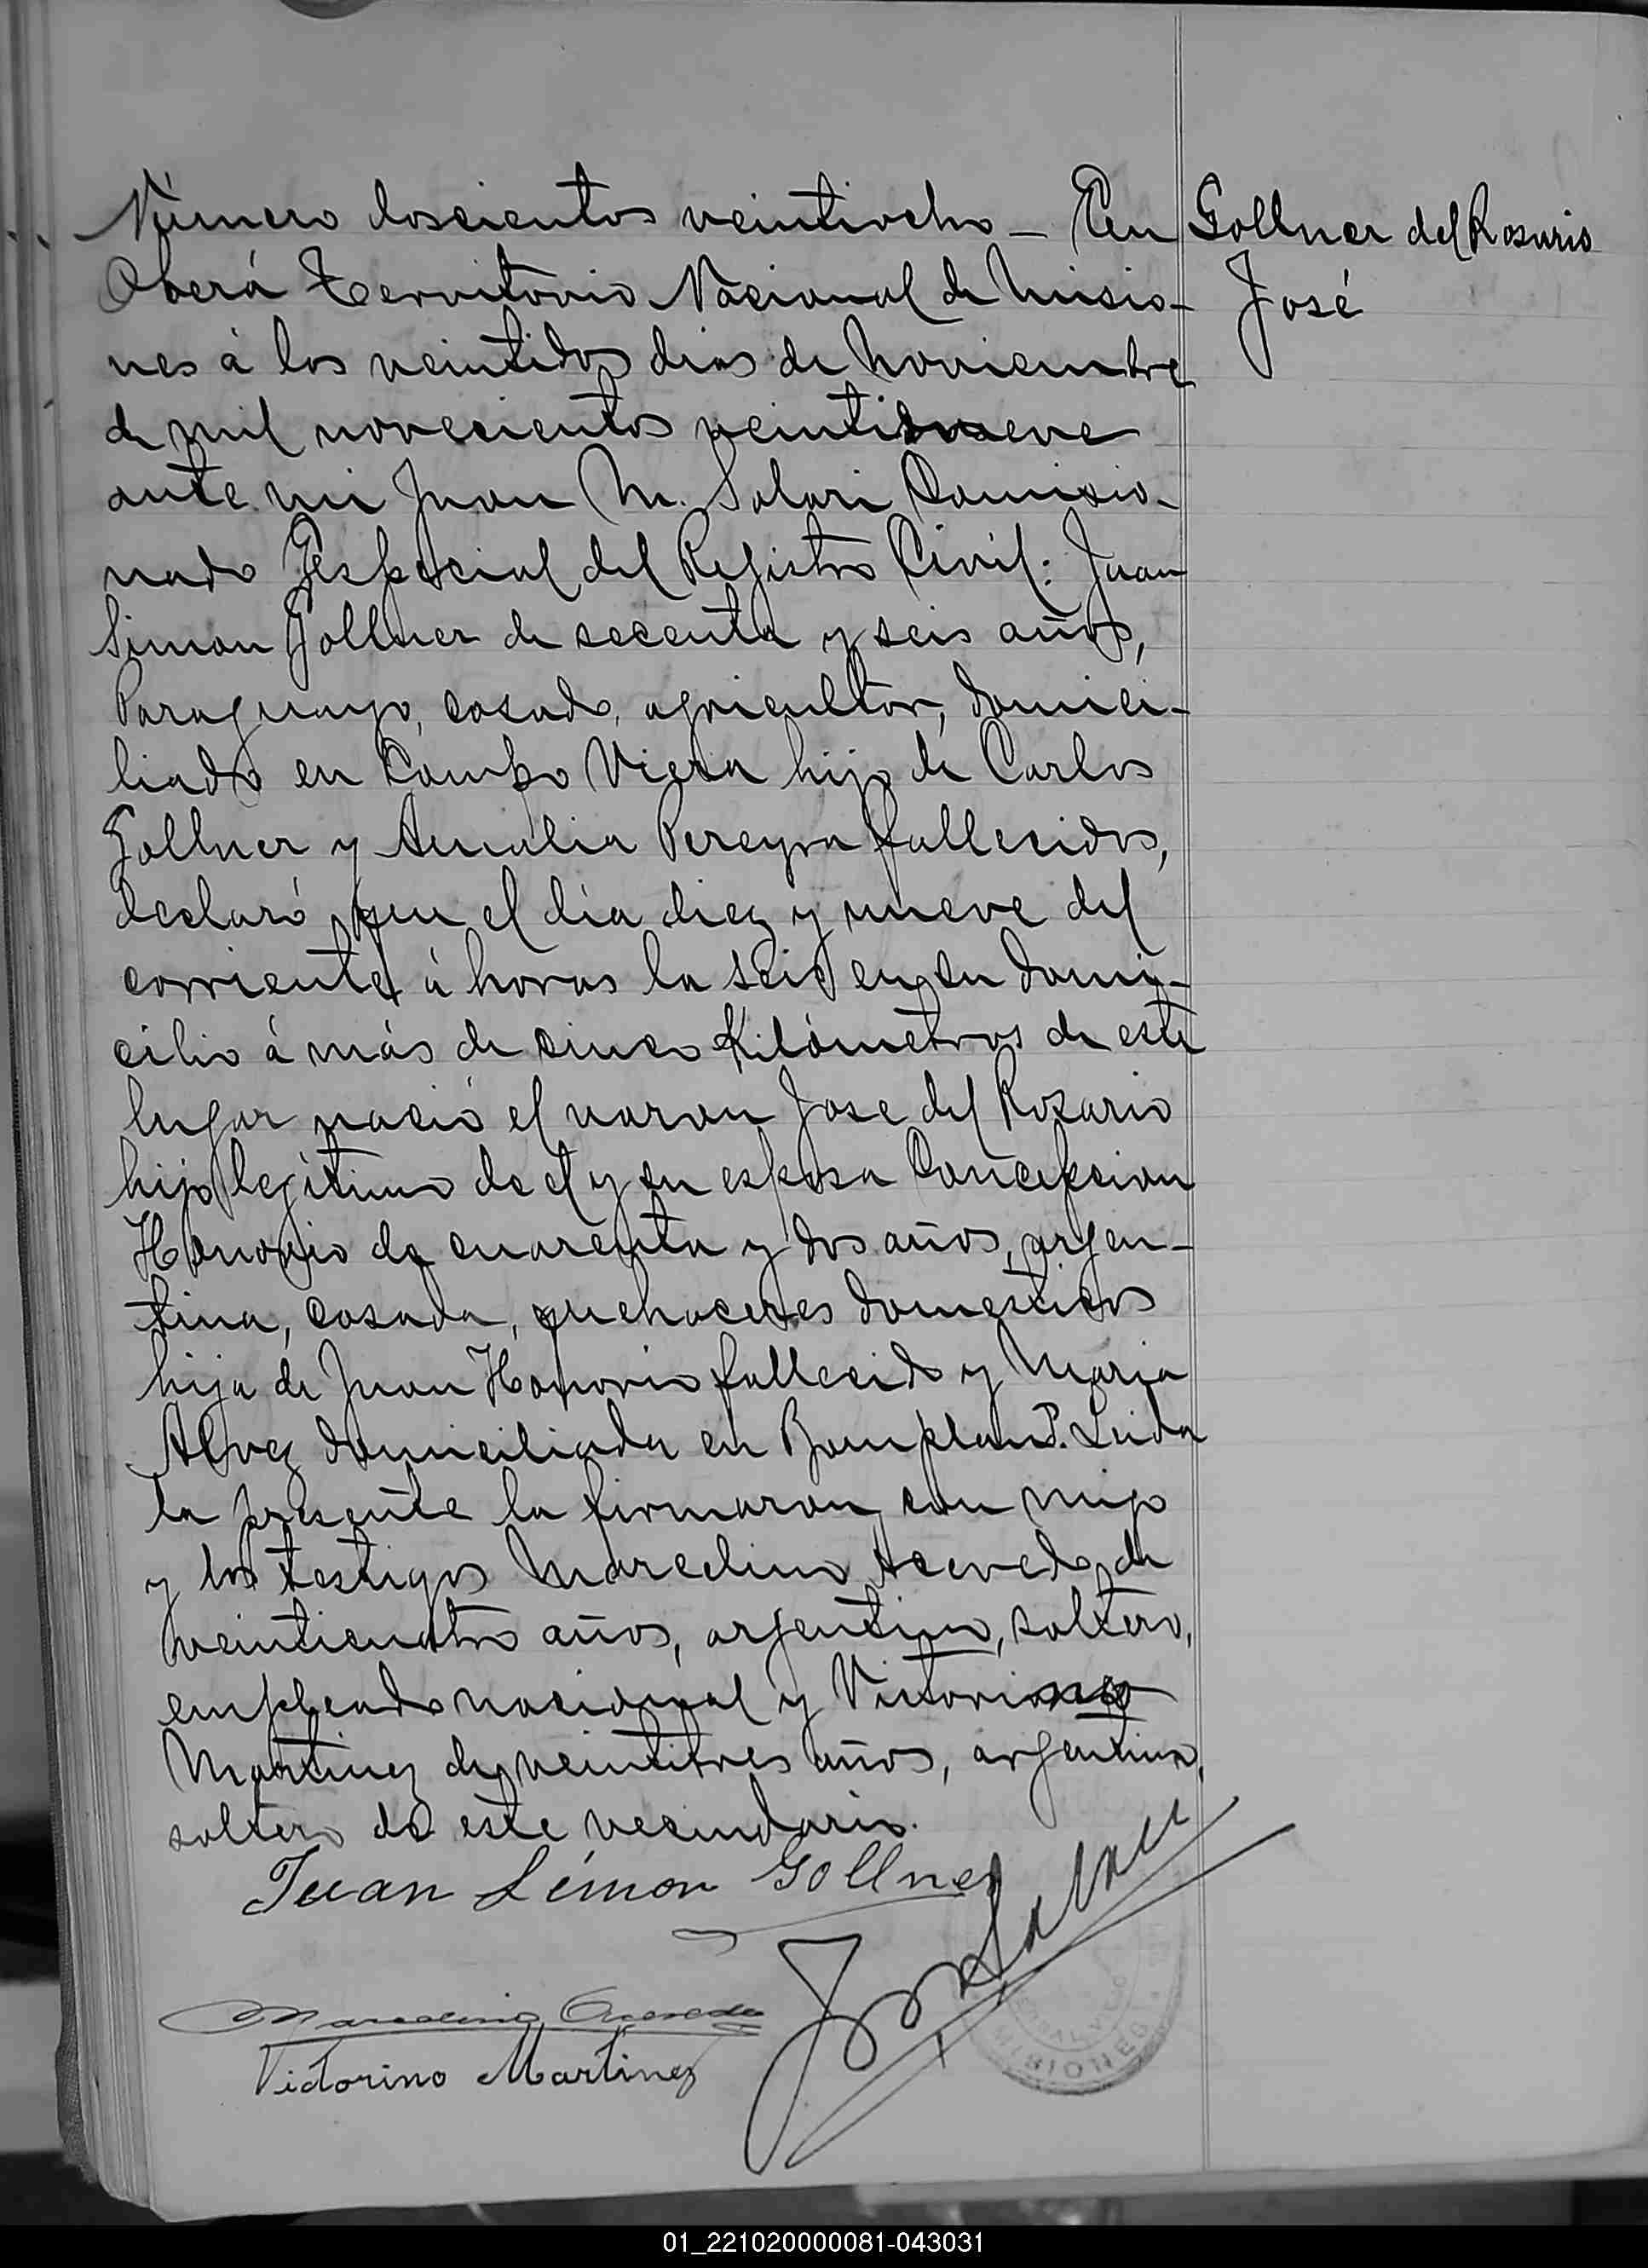 Número doscientos veintiocho – En
Gollner del Rosario
José
Oberá Territorio Nacional de Misio-
nes á los veintidos dias de Noviembre
de mil novecientos veintinueve
ante mi Juan M. Solari Comisio-
nado Especial del Registro Civil: Juan
Simon Gollner de secenta y seis años,
Paraguayo, casado, agricultor, domici-
liado en Campo Viera hijo de Carlos
Gollner y Amalia Pereyra fallecidos,
declaró que el día diez y nueve del
corriente á horas la seis en su domi-
cilio á más de cinco Kilómetros de este
lugar nació el varon Jose del Rozario
hijo legítimo de el y su esposa Concepcion
Honorio de cuarenta y dos años, argen-
tina, casada, quehaceres domesticos
hija de Juan Honorio fallecido y Maria
Alvez domiciliada en Bompland. Leida
la presente la firmaron con migo
y los testigos Marcelino Acevedo de
veinticuatro años, argentino, soltero,
empleado nacional y Victorino
Martinez de veintitres años, argentino,
soltero de este vecindario.
Juan Simon Gollner
Marcelino Acevedo
Victorino Martinez
MISIONES
01_221020000081-043031